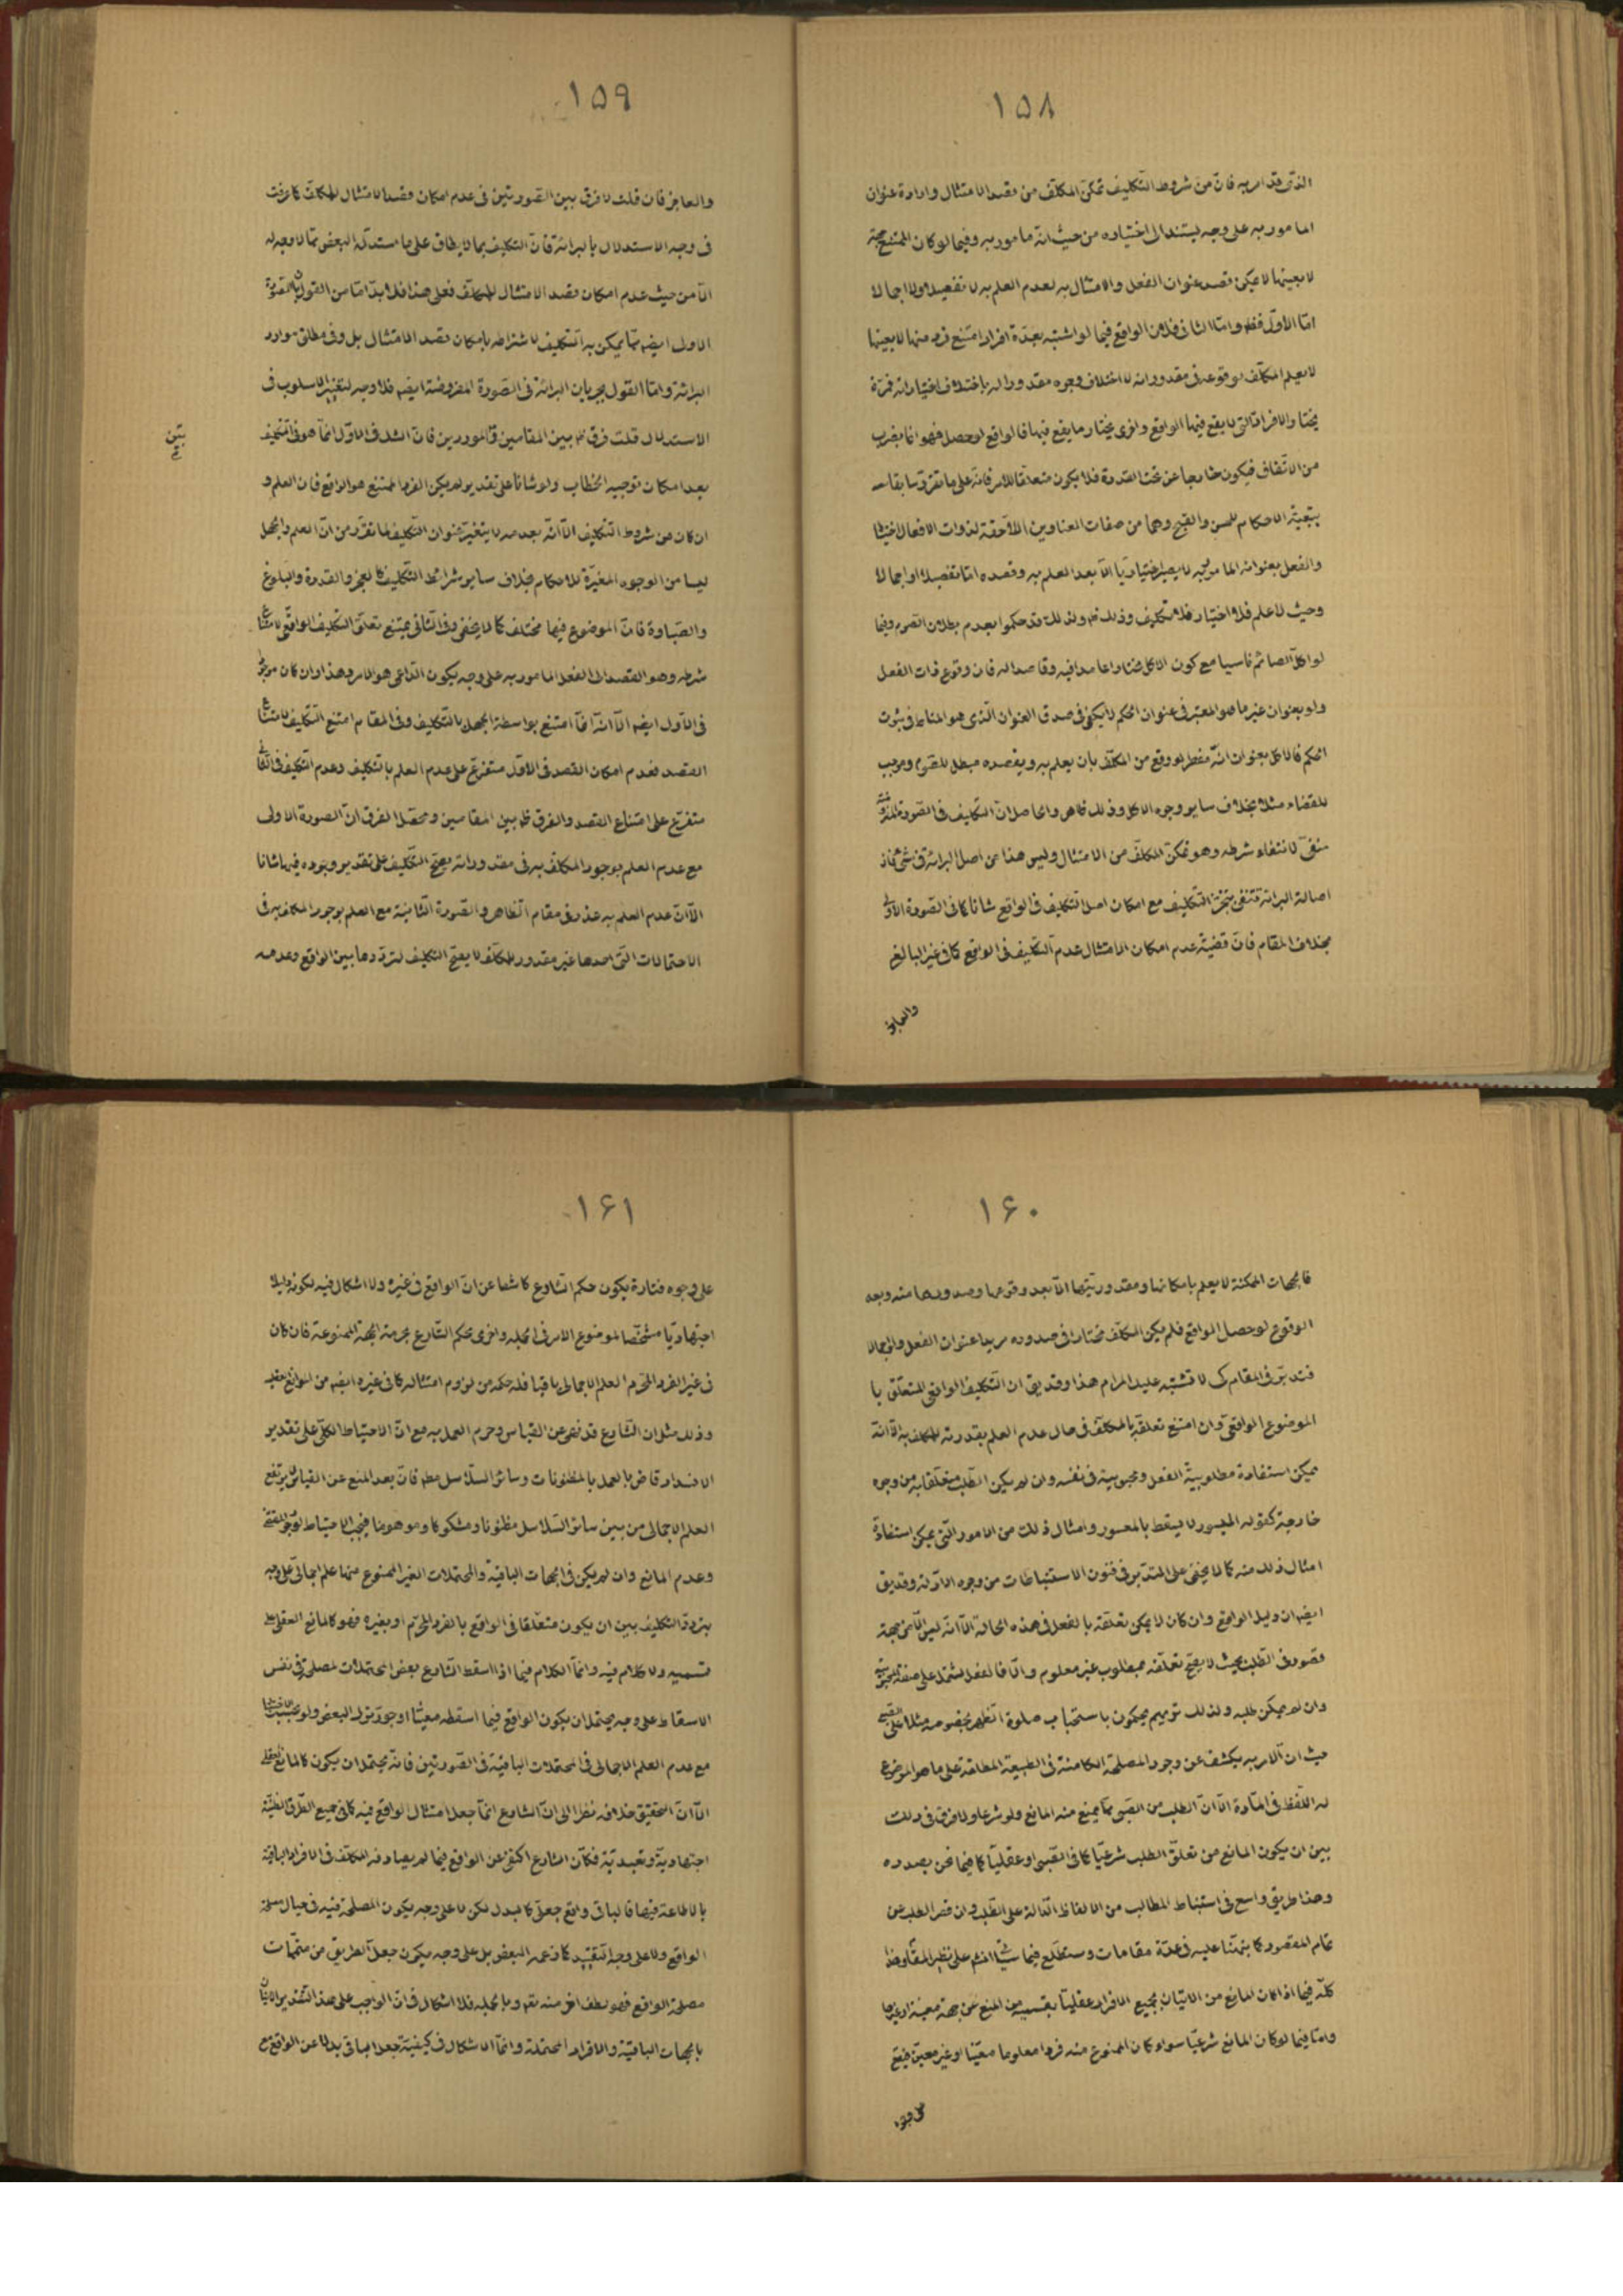 ١٥٨
الذى قد امر به فان من شروط التكليف تمكن المكلف من قصد الامتثال وارادة عنوان
المامور به على وجه يستند الى اختياره من حيث انه مامور به وفيما لو كان الممتنع جهة
لا بعينها لا يمكن قصد عنوان الفعل والامتثال به لعدم العلم به لا تفصيلا ولا اجمالا
امّا الاوّل فظ وامّا الثانى فلان الواقع فيما لو اشتبه بعدّة افراد امتنع فرد منها لا بعينها
لا يعلم المكلف بوقوعه فى مقدوراته لاختلاف وجوه مقدوراته باختلاف اختياراته فمرّة
يختار الافراد التى لا يقع فيها الواقع واخرى يختار ما يقع فيها فالواقع لو حصل فهو انما بضرب
من الاتفاق فيكون خارجا عن تحت القدرة فلا يكون متعلقا للامر فانه على ما تقرّر سابقا من
تبعيّة الاحكام للحسن والقبح وهما من صفات العناوين اللاحقة لذوات الافعال اختيارا
والفعل بعنوانه المامور به لا يصير اختياريّا الا بعد العلم به وقصده امّا تفصيلا او اجمالا
وحيث لا علم فلا اختيار فلا تكليف وذلك ظ ولذلك قد حكموا بعدم بطلان الصوم فيما
لو اكل الصائم ناسيا مع كون الاكل مختارا عامدا فيه وقاصدا له فان وقوع ذات الفعل
ولو بعنوان غير ما هو المعتبر فى عنوان الحكم لا يكفى فى صدق العنوان الّذى هو المناط فى ثبوت
الحكم فالاكل بعنوان انّه مفطر لو وقع من المكلف بان يعلم به ويقصده مبطل للصوم وموجب
للقضاء مثلا بخلاف ساير وجوه الاكل وذلك ظاهر والحاصل ان التكليف فى الصورة المفروضة
منفىّ لانتفاء شرطه وهو تمكن المكلف من الامتثال وليس هذا من اصل البرائة فى شىء فان
اصالة البرائة تنفى تنجّز التكليف مع امكان اصل التكليف فى الواقع شانا كما فى الصورة الاولى
بخلاف المقام فان قضيّة عدم امكان الامتثال عدم التكليف فى الواقع كما فى غير البالغ
والعاجز
١٥٩
والعاجز فان قلت لا فرق بين الصورتين فى عدم امكان قصد الامتثال للمكلف كما عرفت
فى وجه الاستدلال بالبرائة فان التكليف بما لا يطاق على ما استدلّ البعض ممّا لا وجه له
الّا من حيث عدم امكان قصد الامتثال للمكلف فعلى هذا فلا بدّ امّا من القول بان الصورة
الاولى ايضا ممّا يمكن به التكليف لاشتراطه بامكان قصد الامتثال بل وفى مطلق موارد
البرائة وامّا القول بجريان البرائة فى الصورة المفروضة ايضا فلا وجه لتغيير الاسلوب فى
الاستدلال قلت فرق ظ بين المقامين والموردين فان الشك فى الاوّل انما هو فى التكليف
بيّن
بعد امكان توجيه الخطاب ولو شانا على تقدير لم يكن الفرد الممتنع هو الواقع فان العلم و
ان كان من شروط التكليف الّا انّه بعدمه لا يتغيّر عنوان التكليف لما تقرّر من انّ العلم والجهل
ليسا من الوجوه المغيّرة للاحكام بخلاف ساير شرائط التكليف كالعجز والقدرة والبلوغ
والصباوة فان الموضوع فيها مختلف كما لا يخفى وفى الثانى يمتنع تعلّق التكليف الواقعى لامتناع
شرطه وهو القصد الى الفعل المامور به على وجه يكون الداعى هو الامر وهذا وان كان موجودا
فى الاوّل ايضا الّا انّه انما امتنع بواسطة الجهل بالتكليف وفى المقام امتنع التكليف لامتناع
القصد فعدم امكان القصد فى الاوّل متفرّع على عدم العلم بالتكليف وعدم التكليف فى الثانى
متفرّع على امتناع القصد والفرق ظ بين المقامين ومحصّل الفرق انّ الصورة الاولى
مع عدم العلم بوجود المكلف به فى مقدوراته يصحّ التكليف على تقدير وجوده فيها شانا
الّا انّ عدم العلم به عذر فى مقام الظاهر والصورة الثانية مع العلم بوجود المكلف به فى
الاحتمالات التى احدها غير مقدور للمكلف لا يصحّ التكليف لتردّدها بين الواقع وعدمه
١٦٠
فالجهات الممكنة لا يعلم بامكانها ومقدوريّتها الّا بعد وقوعها وصدورها منه وبعد
الوقوع لو حصل الواقع فلم يكن المكلف مختارا فى صدوره مريدا عنوان الفعل ولو اجمالا
فتدبّر فى المقام كى لا تشتبه عليك المرام هذا وقد يق ان التكليف الواقعى المتعلّق با
الموضوع الواقعىّ وان امتنع تعلّقه بالمكلّف فى حال عدم العلم بقدرته للمكلف به الّا انّه
يمكن استفادة مطلوبيّة الفعل ومحبوبيته فى نفسه وان لم يكن الطلب متعلقا به من وجوه
خارجة كقوله الميسور لا يسقط بالمعسور وامثال ذلك من الامور الّتى يمكن استفادة
امثال ذلك منه كما لا يخفى على المتدبّر فى فنون الاستنباطات من وجوه الادلّة وقد يق
ايضا ان دليل الواقع وان كان لا يمكن تعلّقه بالفعل فى هذه الحالة الّا انّه ليس الّا من جهة
قصور فى الطلب بحيث لا يصحّ تعلّقه بمطلوب غير معلوم والّا فالفعل مشتمل على صفة المحبوبيّة
وان لم يمكن طلبه ولذلك تريهم يحكمون باستحباب صلوة الظهر بخصوصه مثلا على الصبى
حيث ان الامر به يكشف عن وجود المصلحة الكامنة فى الطبيعة المطلقة على ما هو الموضوع
له اللّفظ فى المادّة الّا انّ الطلب من الصّبى ممّا يمنع منه المانع ولو شرعا ولا فرق فى ذلك
بين ان يكون المانع من تعلّق الطلب شرعيّا كما فى الصّبى او عقليّا كما فيما نحن بصدده
وهذا طريق واسع فى استنباط المطالب من الالفاظ الدالة على الطلب وان قصر الطلب عن
تمام المقصود كما نبّهنا عليه فى عدّة مقامات وستطّلع فيما سيأتى انشم على نظير المقام وهذا
كلّه فيما اذا كان المانع من الاتيان بجميع الافراد عقليّا بقسميه من المنع عن جهة معيّنة او غيرها
وامّا فيما لو كان المانع شرعيّا سواء كان الممنوع منه فردا معلوما معيّنا او غير معيّن فيقع
على وجوه
١٦١
على وجوه فتارة يكون حكم الشارع كاشفا عن انّ الواقع فى غيره ولا اشكال فيه لكونه دليلا
اجتهاديّا مشخّصا لموضوع الامر فى الجملة واخرى يحكم الشارع بحرمة الجهة الممنوعة فان كان
فى غير الفرد المحرّم العلم الاجمالى باقيا فله حكمه من لزوم امتثاله كما فى غيره ايضا من الموانع العقليّة
وذلك مثل ان الشارع قد نهى عن القياس وحرم العمل به مع انّ الاحتياط الكلّى على تقدير
الانسداد قاض بالعمل بالمظنونات وسائر السلاسل مط فان بعد المنع عن القياس لا يرتفع
العلم الاجمالى من بين سائر السّلاسل مظنونا ومشكوكا وموهوما فيجب الاحتياط لوجود المقتضى
وعدم المانع وان لم يكن فى الجهات الباقية والمحتملات الغير الممنوع منها علم اجمالىّ على وجه
يتردّد التكليف بين ان يكون متعلّقا فى الواقع بالفرد المحرّم او بغيره فهو كالمانع العقلى على
قسميه ولا كلام فيه وانّما الكلام فيما اذا اسقط الشارع بعض المحتملات لمصلحة فى نفس
الاسقاط على وجه يحتمل ان يكون الواقع فيما اسقطه معيّنا او جوّز ترك البعض ولو بحسب اختيارنا
مع عدم العلم الاجمالى فى المحتملات الباقية فى الصورتين فانّه يحتمل ان يكون كالمانع العقلى
الّا انّ التحقيق خلافه نظرا الى انّ الشارع انّما جعل امتثال الواقع فيه كما فى جميع الطّرق الظنيّة
اجتهاديّة وتعبديّة فكانّ الشارع اكتفى عن الواقع فيما لم يصادفه المكلف فى الافراد الباقية
بالاطاعة فيها فالباقى واقع جعلىّ كالبدل لكن لا على وجه يكون المصلحة فيه فى حيال مصلحة
الواقع ولا على وجه التقييد كما زعمه البعض بل على وجه يكون جعل الطريق من متمّمات
مصلحة الواقع فهو لطف اخر منه تع وبالجملة فلا اشكال فى انّ الواجب على هذا التقدير الاتيان
بالجهات الباقية والافراد المحتملة وانّما الاشكال فى كيفيّة جعل الباقى بدلا عن الواقع مع